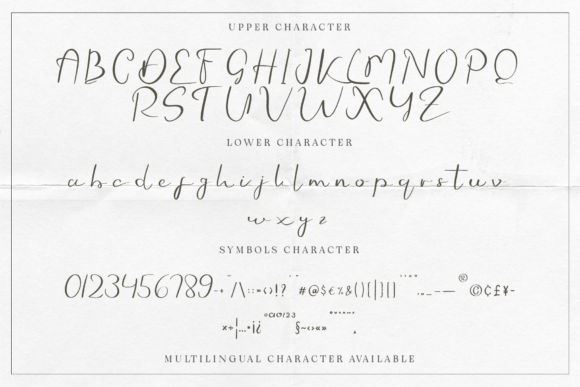 UPPER CHARACTER
ABCDEFGHIJKLMNOPQ
RSTUVWXYZ
LOWER CHARACTER
abcdefghijklmnopqrstuv
wxyz
SYMBOLS CHARACTER
0123456789-+ /\:;=<>!? #@$€%&(){|}[] ® ©¢£¥-
×÷¦…•¡¿ §~‹›«» .
MULTILINGUAL CHARACTER AVAILABLE